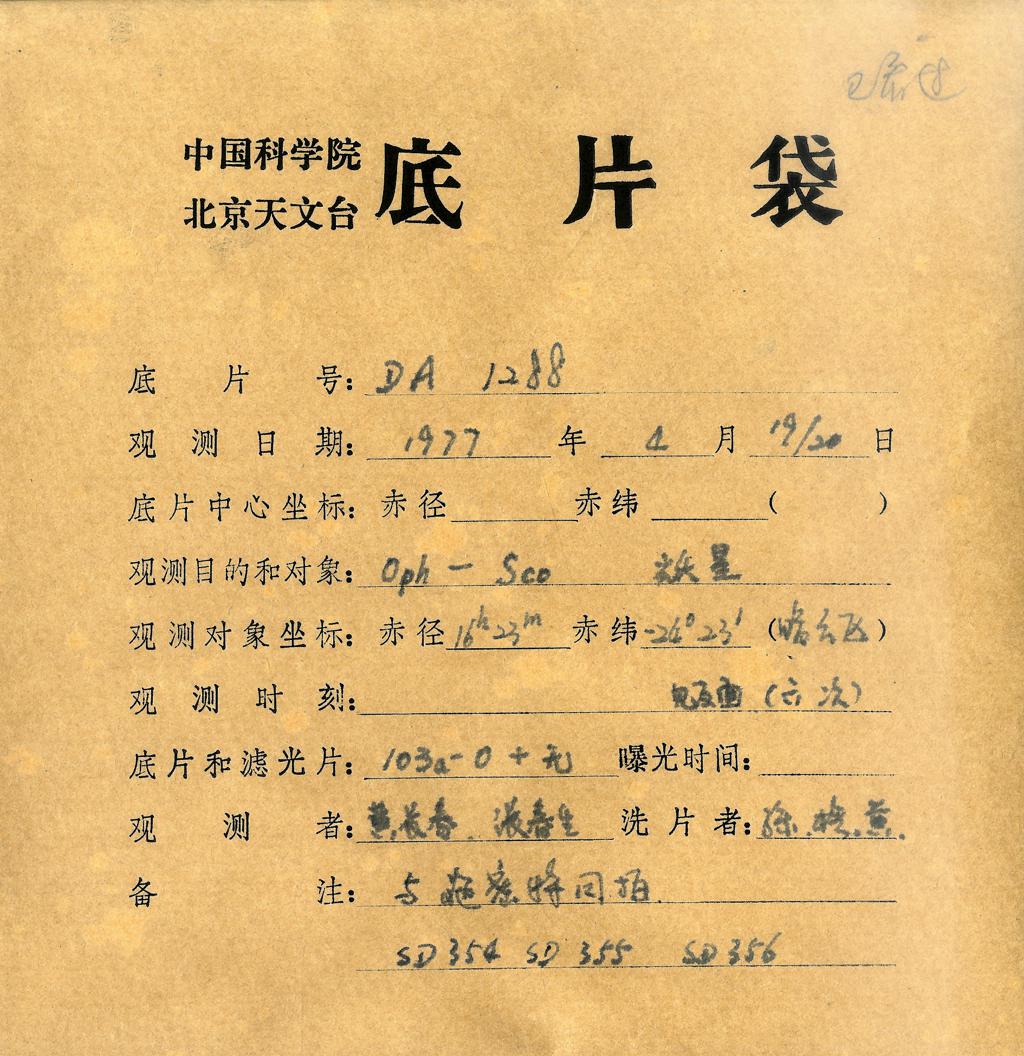 中国科学院
北京天文台
底片袋
底片号: DA 1288
观测日期: 1977 年 4 月 19/20 日
底片中心坐标: 赤径 赤纬 ( )
观测目的和对象: Oph — Sco 光 星
观测对象坐标: 赤径 16h 23m 赤纬 -24° 23′ (暗云区)
观测时刻: (六次)
底片和滤光片: 103a-O + 无 曝光时间:
观测者: 洗片者:
备注: 与施密特同拍
SD 354 SD 355 SD 356